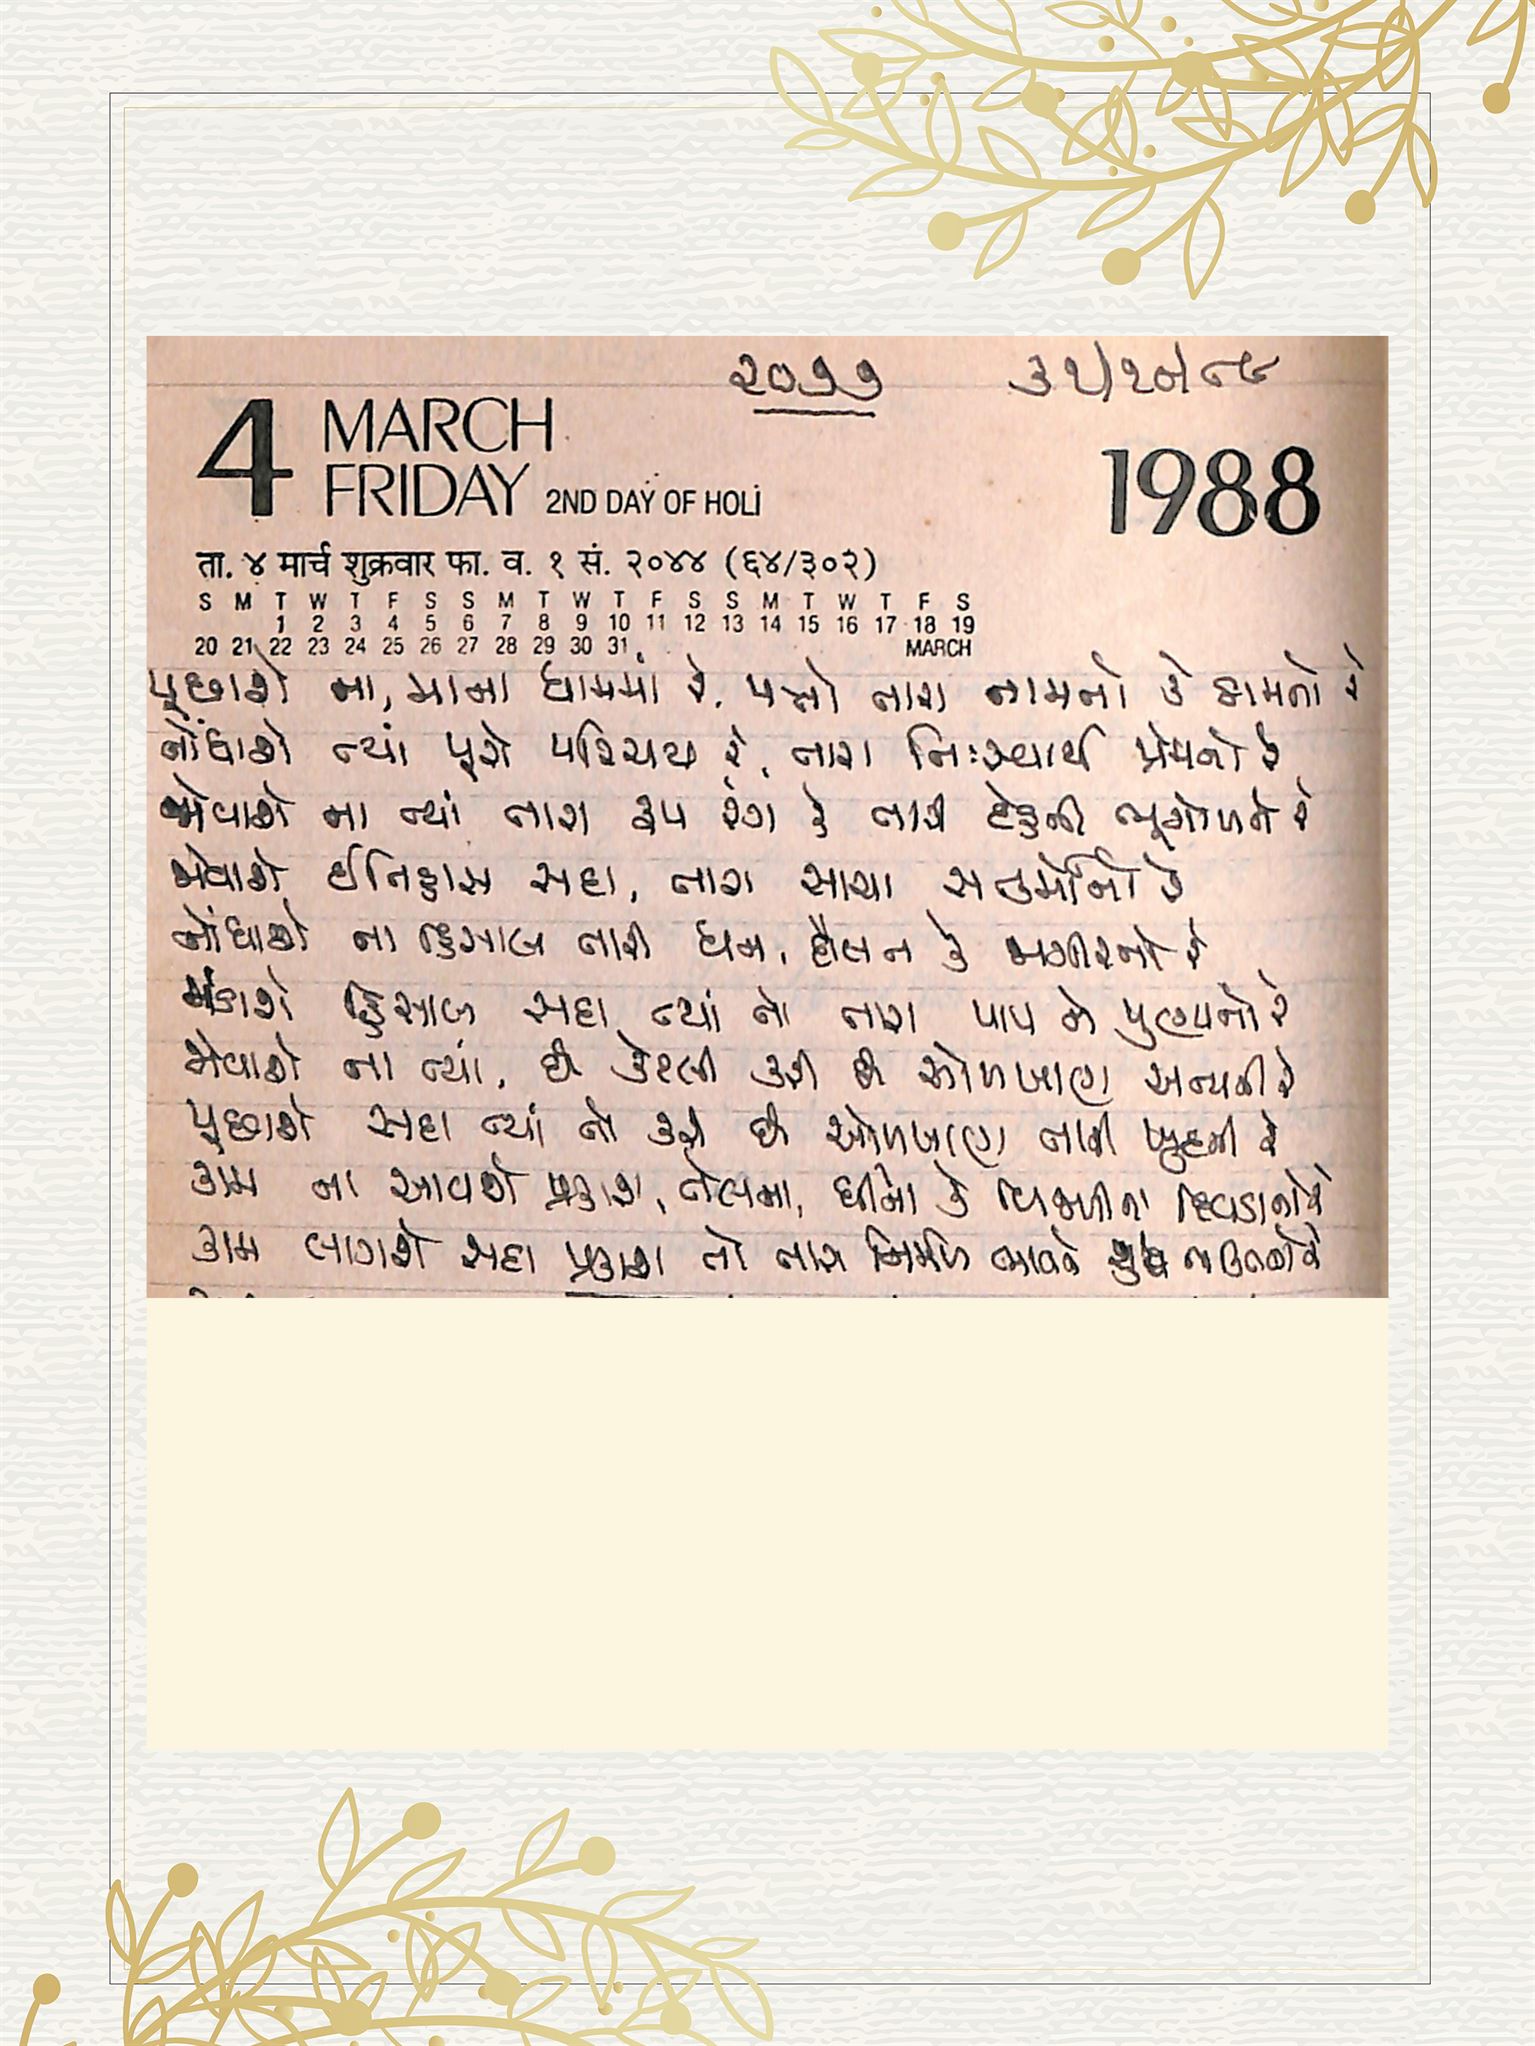 ૨૦૭૭ ૩૧/૧૦/૮૯
4 MARCH
FRIDAY 2ND DAY OF HOLi
1988
ता. ४ मार्च शुक्रवार फा. व. १ सं. २०४४ (६४/३०२)
S M T W T F S S M T W T F S S M T W T F S
1 2 3 4 5 6 7 8 9 10 11 12 13 14 15 16 17 18 19
20 21 22 23 24 25 26 27 28 29 30 31 MARCH
પૂછાશે ના, માના ધામમાં રે, પત્તો તારા નામનો કે કામનો રે
નોંધાશે ત્યાં પૂરો પરિચય રે, તારા નિઃસ્વાર્થ પ્રેમનો રે
જોવાશે ના ત્યાં તારા રૂપ રંગ કે તારી ટેકની ભૂગોળને રે
જોવાશે ઈતિહાસ સદા, તારા સાચા સત્કર્મોનો રે
નોંધાશે ના હિસાબ તારી ધન, દૌલત કે જાગીરનો રે
મંડાશે હિસાબ સદા ત્યાં તો તારા પાપ ને પુણ્યનો રે
જોવાશે ના ત્યાં, છે કેટલી કરી છે ઓળખાણ અન્યની રે
પૂછાશે સદા ત્યાં તો કરી છે ઓળખાણ તારી ખુદની રે
કામ ના આવશે પ્રકાશ, તેલના, ઘીના કે વિજળીના દિવડાનો રે
કામ લાગશે સદા પ્રકાશ તો તારા નિર્મળ ભાવને શુદ્ધ ભક્તિનો રે